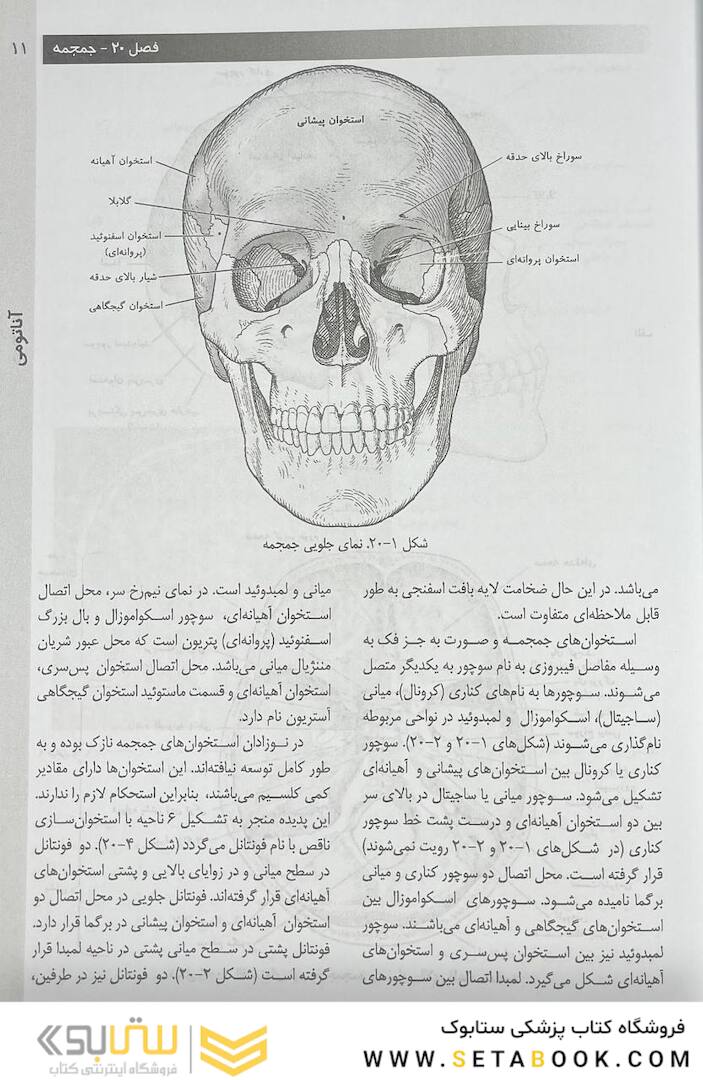 ۱۱
فصل ۲۰ - جمجمه
آناتومی
استخوان پیشانی
سوراخ بالای حدقه
سوراخ بینایی
استخوان پروانه‌ای
استخوان آهیانه
گلابلا
استخوان اسفنوئید
(پروانه‌ای)
شیار بالای حدقه
استخوان گیجگاهی
شکل ۱-۲۰. نمای جلویی جمجمه
می‌باشد. در این حال ضخامت لایه بافت اسفنجی به طور
قابل ملاحظه‌ای متفاوت است.
استخوان‌های جمجمه و صورت به جز فک به
وسیله مفاصل فیبروزی به نام سوچور به یکدیگر متصل
می‌شوند. سوچورها به نام‌های کناری (کرونال)، میانی
(ساجیتال)، اسکواموزال و لمبدوئید در نواحی مربوطه
نام‌گذاری می‌شوند (شکل‌های ۱-۲۰ و ۲-۲۰). سوچور
کناری یا کرونال بین استخوان‌های پیشانی و آهیانه‌ای
تشکیل می‌شود. سوچور میانی یا ساجیتال در بالای سر
بین دو استخوان آهیانه‌ای و درست پشت خط سوچور
کناری (در شکل‌های ۱-۲۰ و ۲-۲۰ رویت نمی‌شوند)
قرار گرفته است. محل اتصال دو سوچور کناری و میانی
برگما نامیده می‌شود. سوچورهای اسکواموزال بین
استخوان‌های گیجگاهی و آهیانه‌ای می‌باشند. سوچور
لمبدوئید نیز بین استخوان پس‌سری و استخوان‌های
آهیانه‌ای شکل می‌گیرد. لمبدا اتصال بین سوچورهای
میانی و لمبدوئید است. در نمای نیم‌رخ سر، محل اتصال
استخوان آهیانه‌ای، سوچور اسکواموزال و بال بزرگ
اسفنوئید (پروانه‌ای) پتریون است که محل عبور شریان
مننژیال میانی می‌باشد. محل اتصال استخوان پس‌سری،
استخوان آهیانه‌ای و قسمت ماستوئید استخوان گیجگاهی
آستریون نام دارد.
در نوزادان استخوان‌های جمجمه نازک بوده و به
طور کامل توسعه نیافته‌اند. این استخوان‌ها دارای مقادیر
کمی کلسیم می‌باشند، بنابراین استحکام لازم را ندارند.
این پدیده منجر به تشکیل ۶ ناحیه با استخوان‌سازی
ناقص با نام فونتانل می‌گردد (شکل ۴-۲۰). دو فونتانل
در سطح میانی و در زوایای بالایی و پشتی استخوان‌های
آهیانه‌ای قرار گرفته‌اند. فونتانل جلویی در محل اتصال دو
استخوان آهیانه‌ای و استخوان پیشانی در برگما قرار دارد.
فونتانل پشتی در سطح میانی پشتی در ناحیه لمبدا قرار
گرفته است (شکل ۲-۲۰). دو فونتانل نیز در طرفین،
فروشگاه کتاب پزشکی ستابوک
WWW.SETABOOK.COM
ستابوک
فروشگاه اینترنتی کتاب